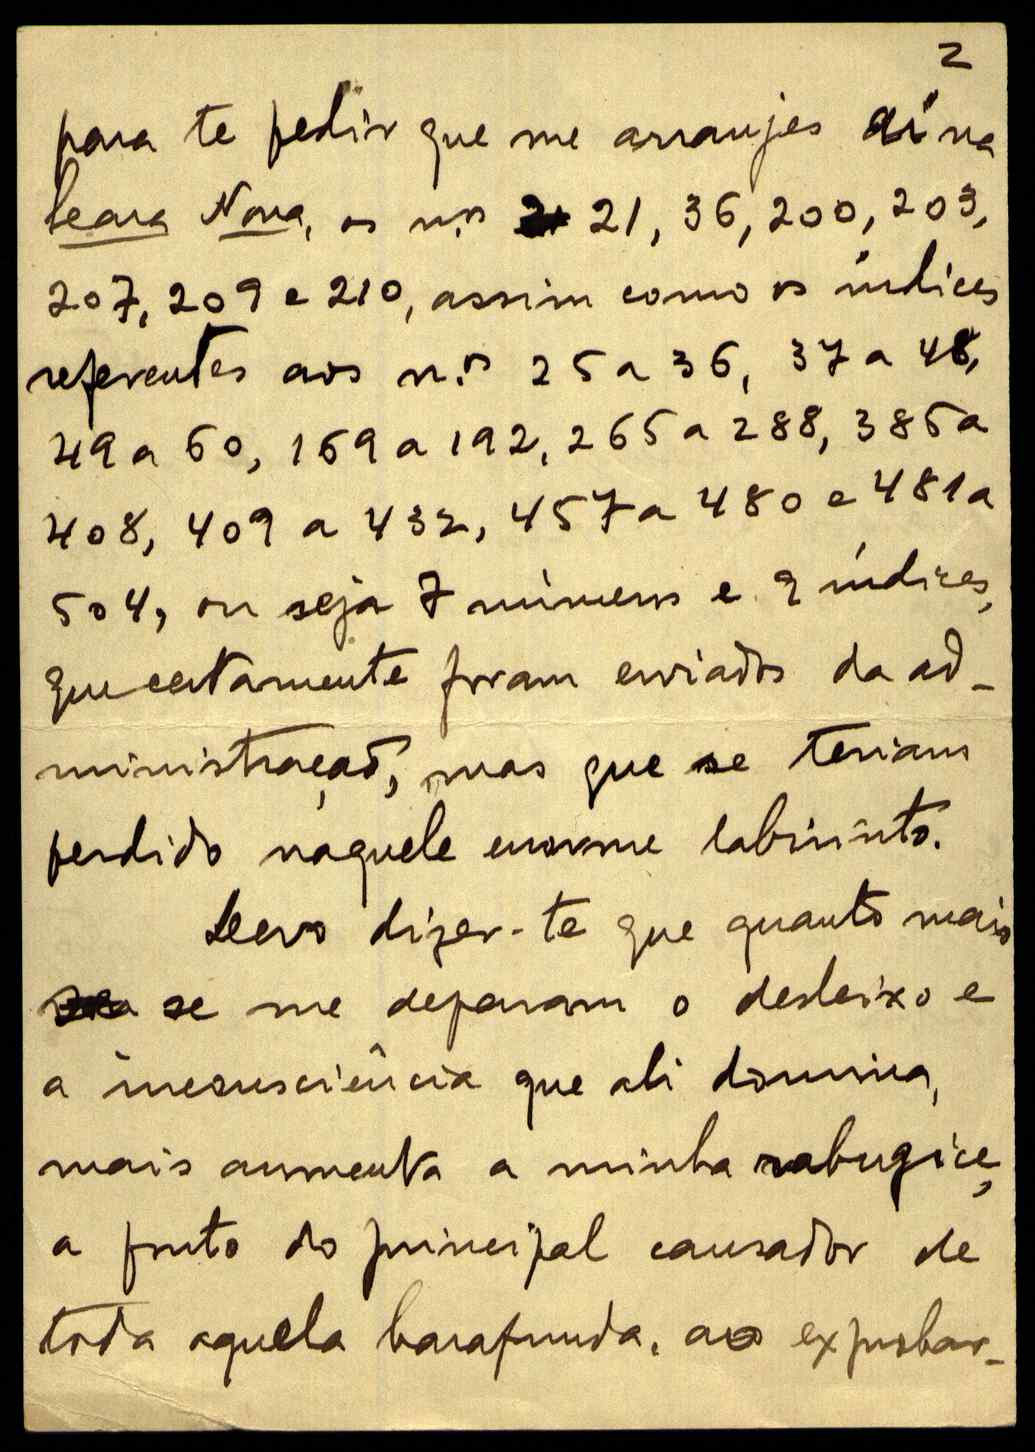 2
para te pedir que me arranjes aí na
Seara Nova, os n.os 21, 36, 200, 203,
207, 209 e 210, assim como os índices
referentes aos n.os 25 a 36, 37 a 48,
49 a 60, 169 a 192, 265 a 288, 385 a
408, 409 a 432, 457 a 480 e 481 a
504, ou seja 7 números e 9 índices,
que certamente foram enviados da ad-
ministração, mas que se teriam
perdido naquele enorme labirinto.
Devo dizer-te que quanto mais
se me deparam o desleixo e
a inconsciência que ali domina,
mais aumenta a minha rabugice,
a fruto do principal causador de
toda aquela barafunda, ao exprobar-